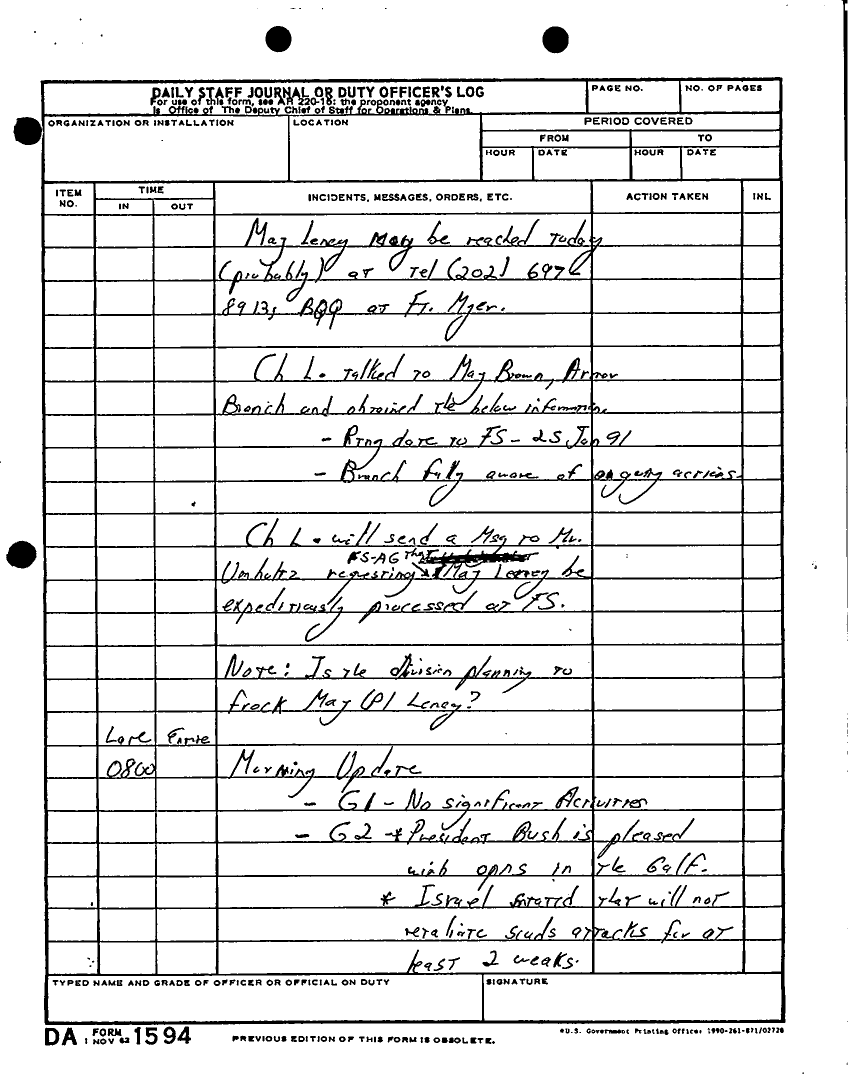 DAILY STAFF JOURNAL OR DUTY OFFICER'S LOG
For use of this form, see AR 220-15; the proponent agency
is Office of The Deputy Chief of Staff for Operations & Plans.
PAGE NO.
NO. OF PAGES
ORGANIZATION OR INSTALLATION
LOCATION
PERIOD COVERED
FROM
TO
HOUR
DATE
HOUR
DATE
ITEM NO.
TIME
IN
OUT
INCIDENTS, MESSAGES, ORDERS, ETC.
ACTION TAKEN
INL
Maj Leney may be reached today
(probably) at Tel (202) 697-
8913; BOQ at Ft. Myer.
Ch L. talked to Maj Brown, Armor
Branch and obtained the below information.
- Rtng date to FS - 25 Jan 91
- Branch fully aware of ongoing actions.
Ch L. will send a Msg to Mr.
FS-AG That
Umholtz requesting Maj Leney be
expeditiously processed at FS.
Note: Is the division planning to
frock Maj (P) Leney?
Late Entrie
0800 Morning Update
- G1 - No significant Activities
- G2 * President Bush is pleased
with opns in the Galf.
* Israel stated that will not
retaliate scuds attacks for at
least 2 weaks.
TYPED NAME AND GRADE OF OFFICER OR OFFICIAL ON DUTY
SIGNATURE
DA FORM 1 NOV 62 1594
PREVIOUS EDITION OF THIS FORM IS OBSOLETE.
*U.S. Government Printing Office: 1990-261-871/02728